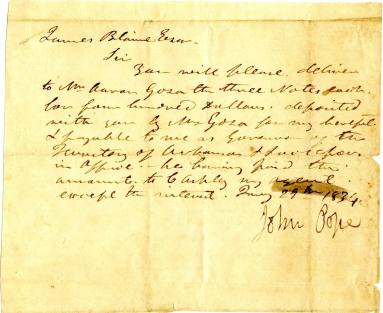 James Blaine Esqr.
Sir
You will please deliver
to Mr Aaron Goza the three Notes each
for four hundred Dollars deposited
with you by Mr Goza for my benefit
& payable to me as Governor of the
Territory of Arkansas &
in office he having paid the
amount to C Ashley my agent
except the interest. 29th 1834
John Pope